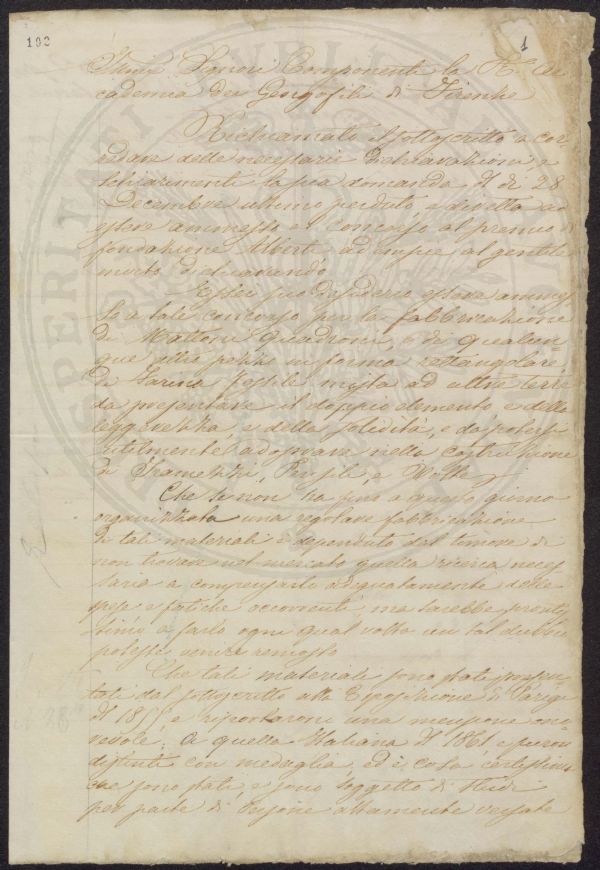 192
1
Illmi Signori Componenti la R. Ac
cademia dei Georgofili di Firenze
Richiamato il sottoscritto a cor
redare delle necessarie dichiarazioni e
schiarimenti la sua domanda del dì 28
Decembre ultimo perduto, diretta ad
essere ammesso al concorso al premio di
fondazione Alberti ad impie al gentile
Esser suo desiderio essere ammes
so a tale concorso per la fabbricazione
di Mattoni quadroni, e di qualun
que altro pezzo in forma rettangolare
di Farina fossile mista ad altre terre
da presentare il doppio elemento e della
leggerezza, e della solidità, e da potersi
utilmente adoprare nella costruzione
di Tramezzi, e Volte
Che se non ha fino a questo giorno
organizzata una regolare fabbricazione
di tali materiali è dependuto dal timore di
non trovare nel mercato quella ricerca neces
saria a compensarlo adeguatamente delle
spese e fatiche occorrenti, ma sarebbe prontis
simo a farlo ogni qual volta un tal dubbio
potesse venire remosso
Che tali materiali sono stati presen
tati dal sottoscritto alla Esposizione di Parigi
del e riportarono una menzione ono
revole; a quella Italiana del 1861 e furon
distinti con medaglia, ed è cosa certissima
che sono stati e sono soggetto di studi
per parte di persone altamente versate